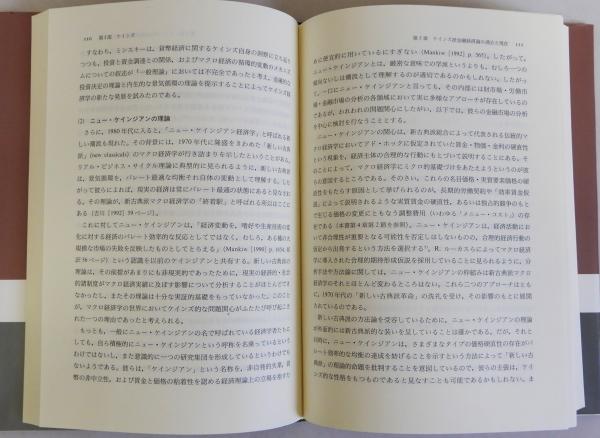 110　第Ⅰ部　ケインズ
すなわち，ミンスキーは，貨幣経済に関するケインズ自身の洞察に立ち返り
つつも，投資と資金調達との関係，およびマクロ経済の循環的変動のメカニズ
ムについての叙述が『一般理論』においては不完全であったと考え，金融的な
投資決定の理論と内生的な景気循環の理論を提示することによってケインズ経
済学の新たな発展を試みたのである。
(2)　ニュー・ケインジアンの理論
さらに，1980年代に入ると，「ニュー・ケインジアン経済学」と呼ばれる新
しい潮流も現れた。その背景には，1970年代に隆盛をきわめた「新しい古典
派」(new classicals) のマクロ経済学が行き詰まりを示したということがある。
リアル・ビジネス・サイクル理論に典型的に見られるように，新しい古典派
は，景気循環を，パレート最適な均衡それ自体の変動として理解する。した
がって彼らによれば，現実の経済は常にパレート最適の状態にあると見なされ
る。その理論が，新古典派マクロ経済学の「終着駅」と呼ばれる所以はここに
ある（吉川［1992］39ページ）。
これに対してニュー・ケインジアンは，「経済変動を，嗜好や生産技術の変
化に対する経済のパレート効率的な反応としてではなく，むしろ，ある種の大
規模な市場の失敗を反映したものとしてとらえる」(Mankiw [1990] p. 1654, 邦
訳
ページ）という認識を以前のケインジアンと共有する。新しい古典派の
理論は，その前提があまりにも非現実的であったために，現実の経済的・社会
的諸制度がマクロ経済実績に及ぼす影響について分析することがほとんどでき
なかったし，またその理論は十分な実証的基礎をもっていなかった。このこと
が，マクロ経済学の世界においてケインズ的な問題関心がふたたび呼び起こさ
れた一つの理由であったと考えられる。
もっとも，一般にニュー・ケインジアンの名で呼ばれている経済学者たちに
しても，自ら積極的にニュー・ケインジアンという呼称を名乗っているという
わけではないし，また意識的に一つの研究集団を形成しているというわけでも
ないようである。彼らは，「ケインジアン」という名称を，非自発的失業，貨
幣の非中立性，および賃金と価格の粘着性を認める経済理論上の立場を指すた
第5章　ケインズ派金融経済論の過去と現在　111
めに便宜的に用いているにすぎない (Mankiw [1992] p. 565)。したがって，
ニュー・ケインジアンとは，厳密な意味での学派というよりも，むしろ一つの
傾向ないしは潮流として理解するのが適切であるのかもしれない。したがっ
て，一口にニュー・ケインジアンと言っても，その内部には財市場・労働市
場・金融市場の分析の各領域において実に多様なアプローチが存在しているの
であるが，われわれの問題関心にしたがい，以下では，彼らの金融市場の分析
を中心に検討を行なうこととする。
ニュー・ケインジアンの関心は，新古典派総合によって代表される伝統的マ
クロ経済学においてアド・ホックに仮定されていた賃金・物価・金利の硬直性
という現象を，経済主体の合理的な行動にもとづいて説明することにある。そ
のことによって，マクロ経済学にミクロ的基礎づけをあたえようというのが彼
らの意図するところである。そのさい，これらの名目価格・実質要素価格の硬
直性をもたらす原因として挙げられるのが，長期的労働契約や「効率賃金仮
説」によって説明されるような実質賃金の硬直性，あるいは独占的競争のもと
で生じる価格の変更にともなう調整費用（いわゆる「メニュー・コスト」）の存在
である（本書第4章第2節を参照）。ニュー・ケインジアンは，経済活動にお
いて非合理性が重要となる可能性を否定はしないものの，合理的経済行動の
仮定から出発するという方法を選択する。R. ルーカスらによってマクロ経済
学に導入された合理的期待形成仮説を採用していることに見られるように，分
析手法や方法論に関しては，ニュー・ケインジアンの枠組みは新古典派マクロ
経済学のそれとほとんど変わるところはない。これら二つのアプローチはとも
に，1970年代の「新しい古典派革命」の洗礼を受け，その影響のもとに展開
されているのである。
新古典派の方法論を受容しているために，ニュー・ケインジアンの理論
が外面的には新古典派的な装いを呈していることは確かである。だが，それと
同時に，ニュー・ケインジアンは，さまざまなタイプの価格硬直性の存在がパ
レート効率的な均衡の達成を妨げることを示すという方法によって「新しい古
典派」の理論的命題を批判することを意図しているので，彼らの主張は，ケイ
ンズ的な性格をもつものであると見なすことも可能であるかもしれない。ま